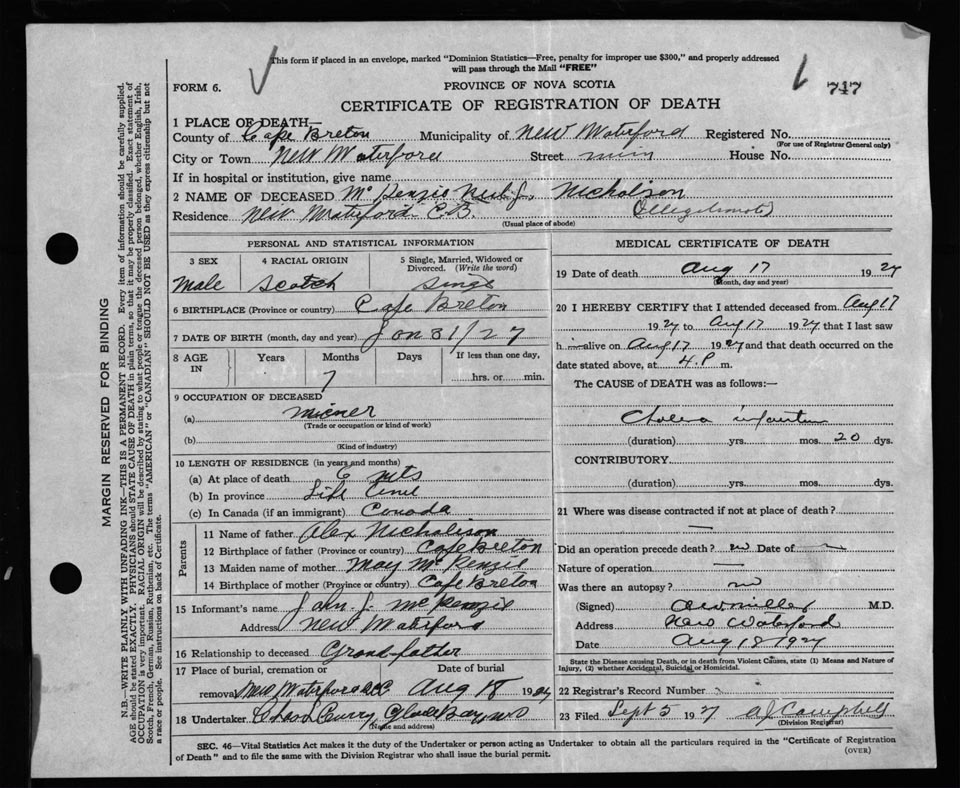 This form if placed in an envelope, marked "Dominion Statistics—Free, penalty for improper use $300," and properly addressed
will pass through the Mail "FREE"
FORM 6.
PROVINCE OF NOVA SCOTIA
747
CERTIFICATE OF REGISTRATION OF DEATH
1 PLACE OF DEATH—
County of Cape Breton Municipality of New Waterford Registered No.
(For use of Registrar General only)
City or Town New Waterford Street House No.
If in hospital or institution, give name
2 NAME OF DECEASED McKenzie Neil J. Nicholson
Residence New Waterford C.B. (Illegitimate)
(Usual place of abode)
PERSONAL AND STATISTICAL INFORMATION
3 SEX 4 RACIAL ORIGIN 5 Single, Married, Widowed or Divorced. (Write the word)
Male Scotch Single
6 BIRTHPLACE (Province or country) Cape Breton
7 DATE OF BIRTH (month, day and year) Jan 31/27
8 AGE IN Years Months Days If less than one day,
7 hrs. or min.
9 OCCUPATION OF DECEASED
(a)
(Trade or occupation or kind of work)
(b)
(Kind of industry)
10 LENGTH OF RESIDENCE (in years and months)
(a) At place of death 6 mts
(b) In province Life time
(c) In Canada (if an immigrant) Canada
Parents
11 Name of father Alex Nicholison
12 Birthplace of father (Province or country) Cape Breton
13 Maiden name of mother May McKenzie
14 Birthplace of mother (Province or country) Cape Breton
15 Informant's name John J. McKenzie
Address New Waterford
16 Relationship to deceased Grandfather
17 Place of burial, cremation or Date of burial
removal New Waterford Aug 18 1927
18 Undertaker Chas L Curry, Glace Bay NS
(Name and address)
MEDICAL CERTIFICATE OF DEATH
19 Date of death Aug 17 1927
(Month, day and year)
20 I HEREBY CERTIFY that I attended deceased from Aug 17
1927 to Aug 17 1927 that I last saw
h alive on Aug 17 1927 and that death occurred on the
date stated above, at 4.P m.
The CAUSE of DEATH was as follows:—
Cholera infantum
(duration) yrs. mos. 20 dys.
CONTRIBUTORY
(duration) yrs. mos. dys.
21 Where was disease contracted if not at place of death?
—
Did an operation precede death? no Date of —
Nature of operation —
Was there an autopsy? no
(Signed) Miller M.D.
Address New Waterford
Date Aug 18 1927
State the Disease causing Death, or in death from Violent Causes, state (1) Means and Nature of
Injury, (2) whether Accidental, Suicidal or Homicidal.
22 Registrar's Record Number
23 Filed Sept 5 1927 A J Campbell
(Division Registrar)
SEC. 46—Vital Statistics Act makes it the duty of the Undertaker or person acting as Undertaker to obtain all the particulars required in the "Certificate of Registration
of Death" and to file the same with the Division Registrar who shall issue the burial permit.
(OVER)
MARGIN RESERVED FOR BINDING
N.B.—WRITE PLAINLY WITH UNFADING INK—THIS IS A PERMANENT RECORD. Every item of information should be carefully supplied.
AGE should be stated EXACTLY. PHYSICIANS should STATE CAUSE OF DEATH in plain terms, so that it may be properly classified. Exact statement of
OCCUPATION is very important. RACIAL ORIGIN will be described by stating to what people or tongue the deceased person belonged, whether English, Irish,
Scotch, French, German, Russian, Ruthenian, etc. The terms "AMERICAN" or "CANADIAN" SHOULD NOT BE USED as they express citizenship but not
a race or people. See instructions on back of Certificate.